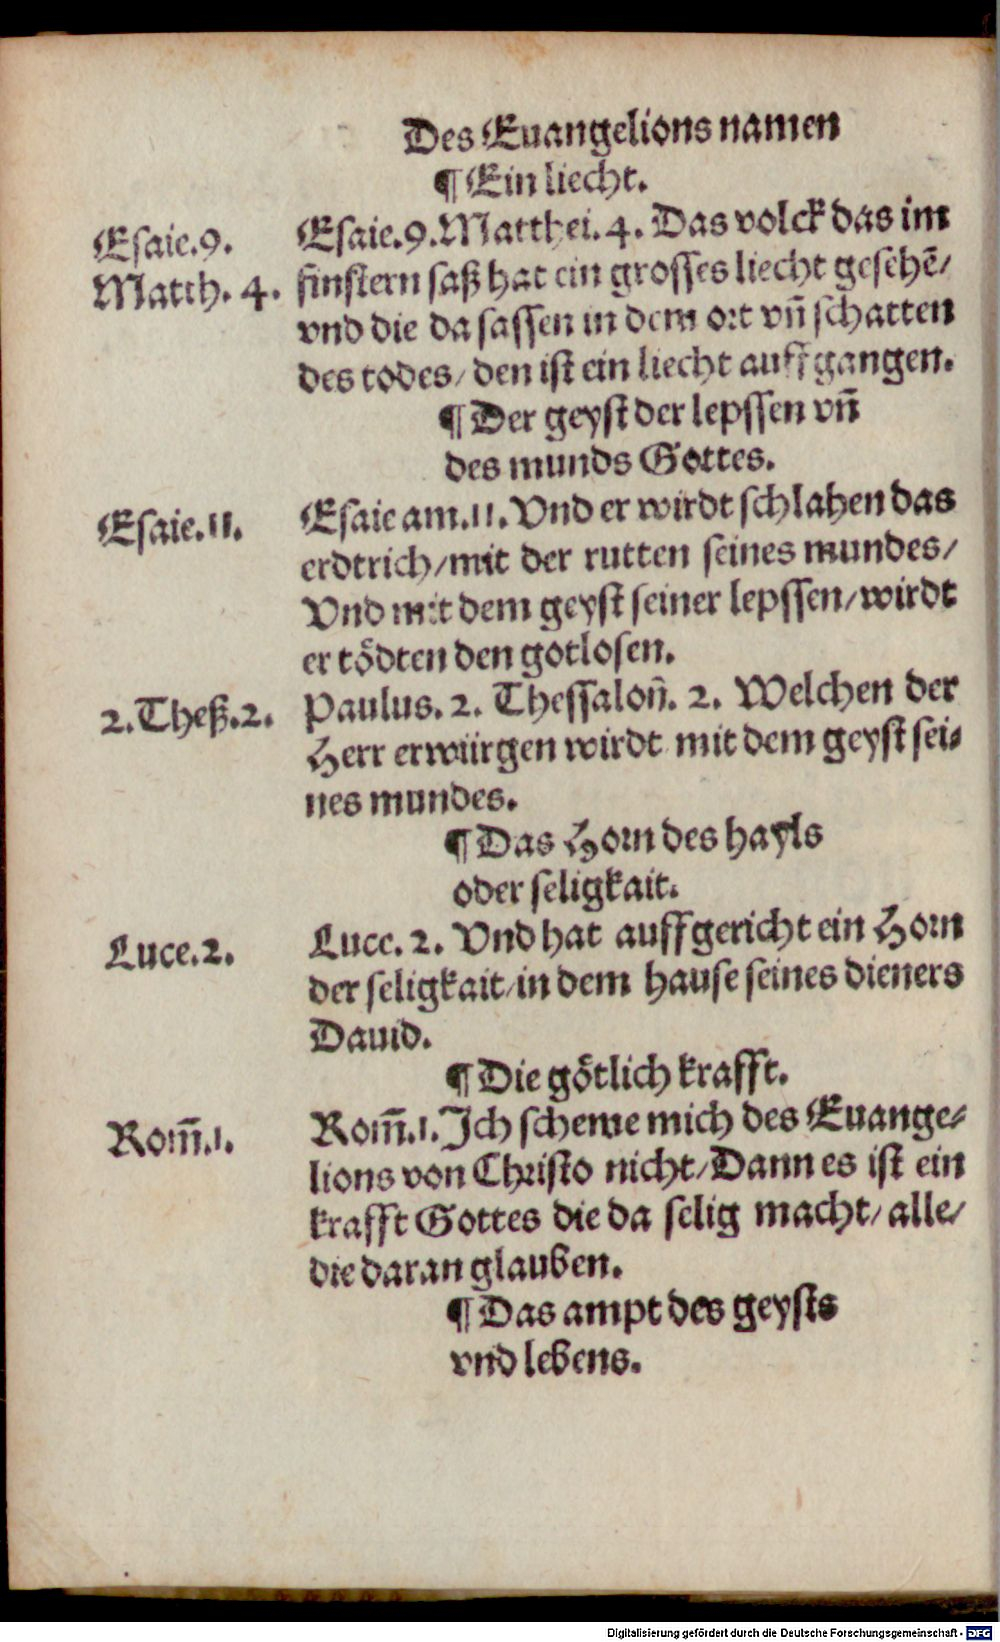 Des Euangelions namen
¶ Ein liecht.
Esaie.9.
Matth. 4.
Esaie.9.Matthei. 4. Das volck das im
finstern saß hat ein grosses liecht gesehē/
vnd die da sassen in dem ort vn̄ schatten
des todes/ den ist ein liecht auffgangen.
¶ Der geyst der lepssen vn̄
des munds Gottes.
Esaie.11.
Esaie am.11. Vnd er wirdt schlahen das
erdtrich/mit der rutten seines mundes/
Vnd mit dem geyst seiner lepssen/wirdt
er tödten den gotlosen.
2.Theß.2.
Paulus. 2. Thessalon̄. 2. Welchen der
Herr erwürgen wirdt mit dem geyst sei⸗
nes mundes.
¶ Das Horn des hayls
oder seligkait.
Luce.2.
Luce. 2. Vnd hat auffgericht ein Horn
der seligkait/in dem hause seines dieners
Dauid.
¶ Die götlich krafft.
Rom̄.1.
Rom̄.1. Ich scheme mich des Euange⸗
lions von Christo nicht/Dann es ist ein
krafft Gottes die da selig macht/ alle/
die daran glauben.
¶ Das ampt des geysts
vnd lebens.
Digitalisierung gefördert durch die Deutsche Forschungsgemeinschaft - DFG